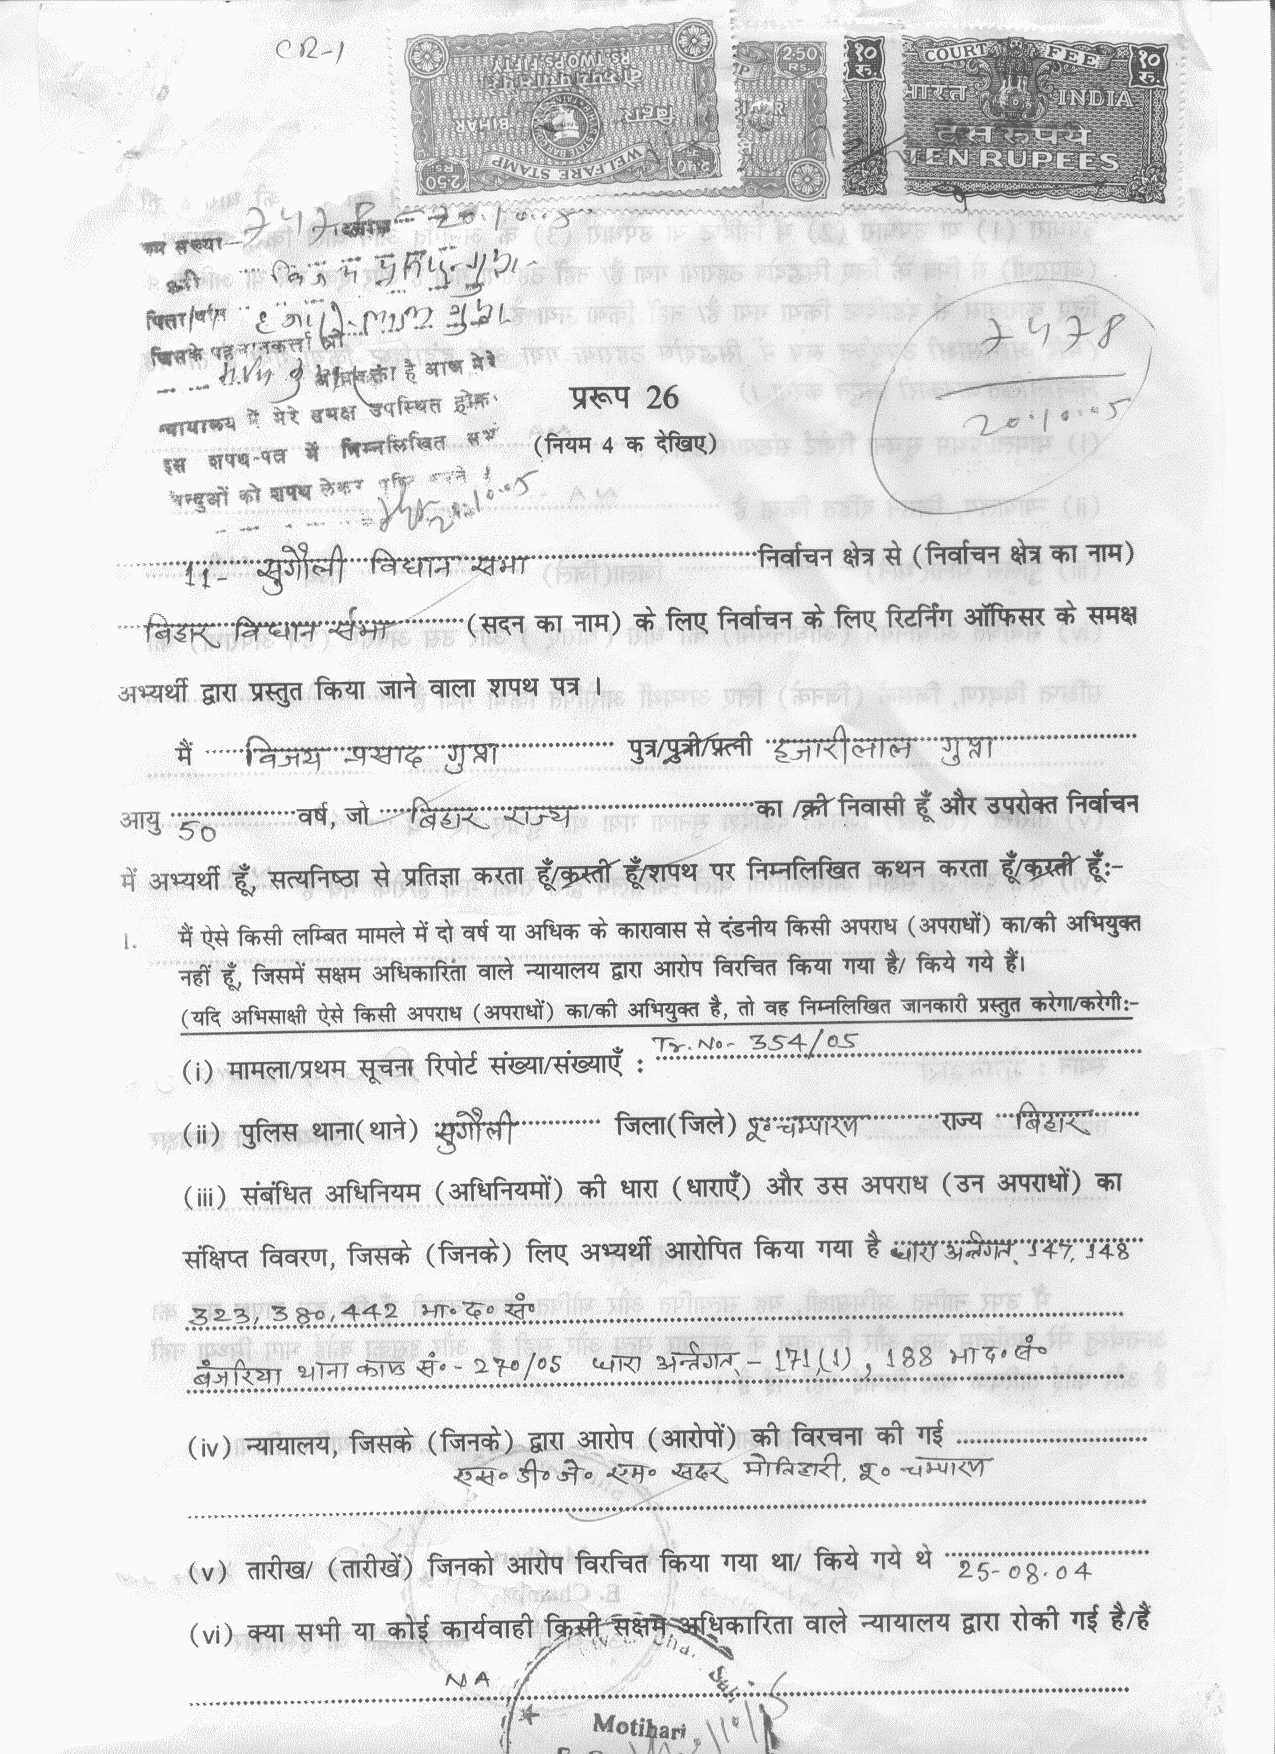 CR-1
RS. TWO PS. FIFTY
बिहार
BIHAR
WELFARE STAMP
2.50
2.50 RS
१० रु.
COURT FEE
१० रु.
भारत
INDIA
दस रुपये
TEN RUPEES
क्रम संख्या 7478 दिनांक 20.10.05
श्री विजय प्रसाद गुप्ता
पिता/पति हजारी लाल गुप्ता
जिसके पहचानकर्त्ता श्री
अधिवक्ता है आज मेरे
न्यायालय में मेरे समक्ष उपस्थित होकर
इस शपथ-पत्र में निम्नलिखित सभी
वस्तुओं को शपथ लेकर
20.10.05
7478
20.10.05
प्ररूप 26
(नियम 4 क देखिए)
11- सुगौली विधान सभा निर्वाचन क्षेत्र से (निर्वाचन क्षेत्र का नाम)
बिहार विधान सभा (सदन का नाम) के लिए निर्वाचन के लिए रिटर्निंग ऑफिसर के समक्ष
अभ्यर्थी द्वारा प्रस्तुत किया जाने वाला शपथ पत्र ।
मैं विजय प्रसाद गुप्ता पुत्र/पुत्री/पत्नी हजारीलाल गुप्ता
आयु 50 वर्ष, जो बिहार राज्य का /की निवासी हूँ और उपरोक्त निर्वाचन
में अभ्यर्थी हूँ, सत्यनिष्ठा से प्रतिज्ञा करता हूँ/करती हूँ/शपथ पर निम्नलिखित कथन करता हूँ/करती हूँ:-
1. मैं ऐसे किसी लम्बित मामले में दो वर्ष या अधिक के कारावास से दंडनीय किसी अपराध (अपराधों) का/की अभियुक्त
नहीं हूँ, जिसमें सक्षम अधिकारिता वाले न्यायालय द्वारा आरोप विरचित किया गया है/ किये गये हैं।
(यदि अभिसाक्षी ऐसे किसी अपराध (अपराधों) का/की अभियुक्त है, तो वह निम्नलिखित जानकारी प्रस्तुत करेगा/करेगी:-
(i) मामला/प्रथम सूचना रिपोर्ट संख्या/संख्याएँ : Tr. No- 354/05
(ii) पुलिस थाना(थाने) सुगौली जिला(जिले) पू० चम्पारण राज्य बिहार
(iii) संबंधित अधिनियम (अधिनियमों) की धारा (धाराएँ) और उस अपराध (उन अपराधों) का
संक्षिप्त विवरण, जिसके (जिनके) लिए अभ्यर्थी आरोपित किया गया है धारा अर्न्तगत, 147, 148
323, 380, 442 भा० द० सं०
बंजरिया थाना काण्ड सं०- 270/05 धारा अर्न्तगत - 171(1), 188 भा द० सं०
(iv) न्यायालय, जिसके (जिनके) द्वारा आरोप (आरोपों) की विरचना की गई
एस० डी० जे० एम० सदर मोतिहारी, पू० चम्पारण
(v) तारीख/ (तारीखें) जिनको आरोप विरचित किया गया था/ किये गये थे 25-08-04
(vi) क्या सभी या कोई कार्यवाही किसी सक्षम अधिकारिता वाले न्यायालय द्वारा रोकी गई है/हैं
NA
Motihari